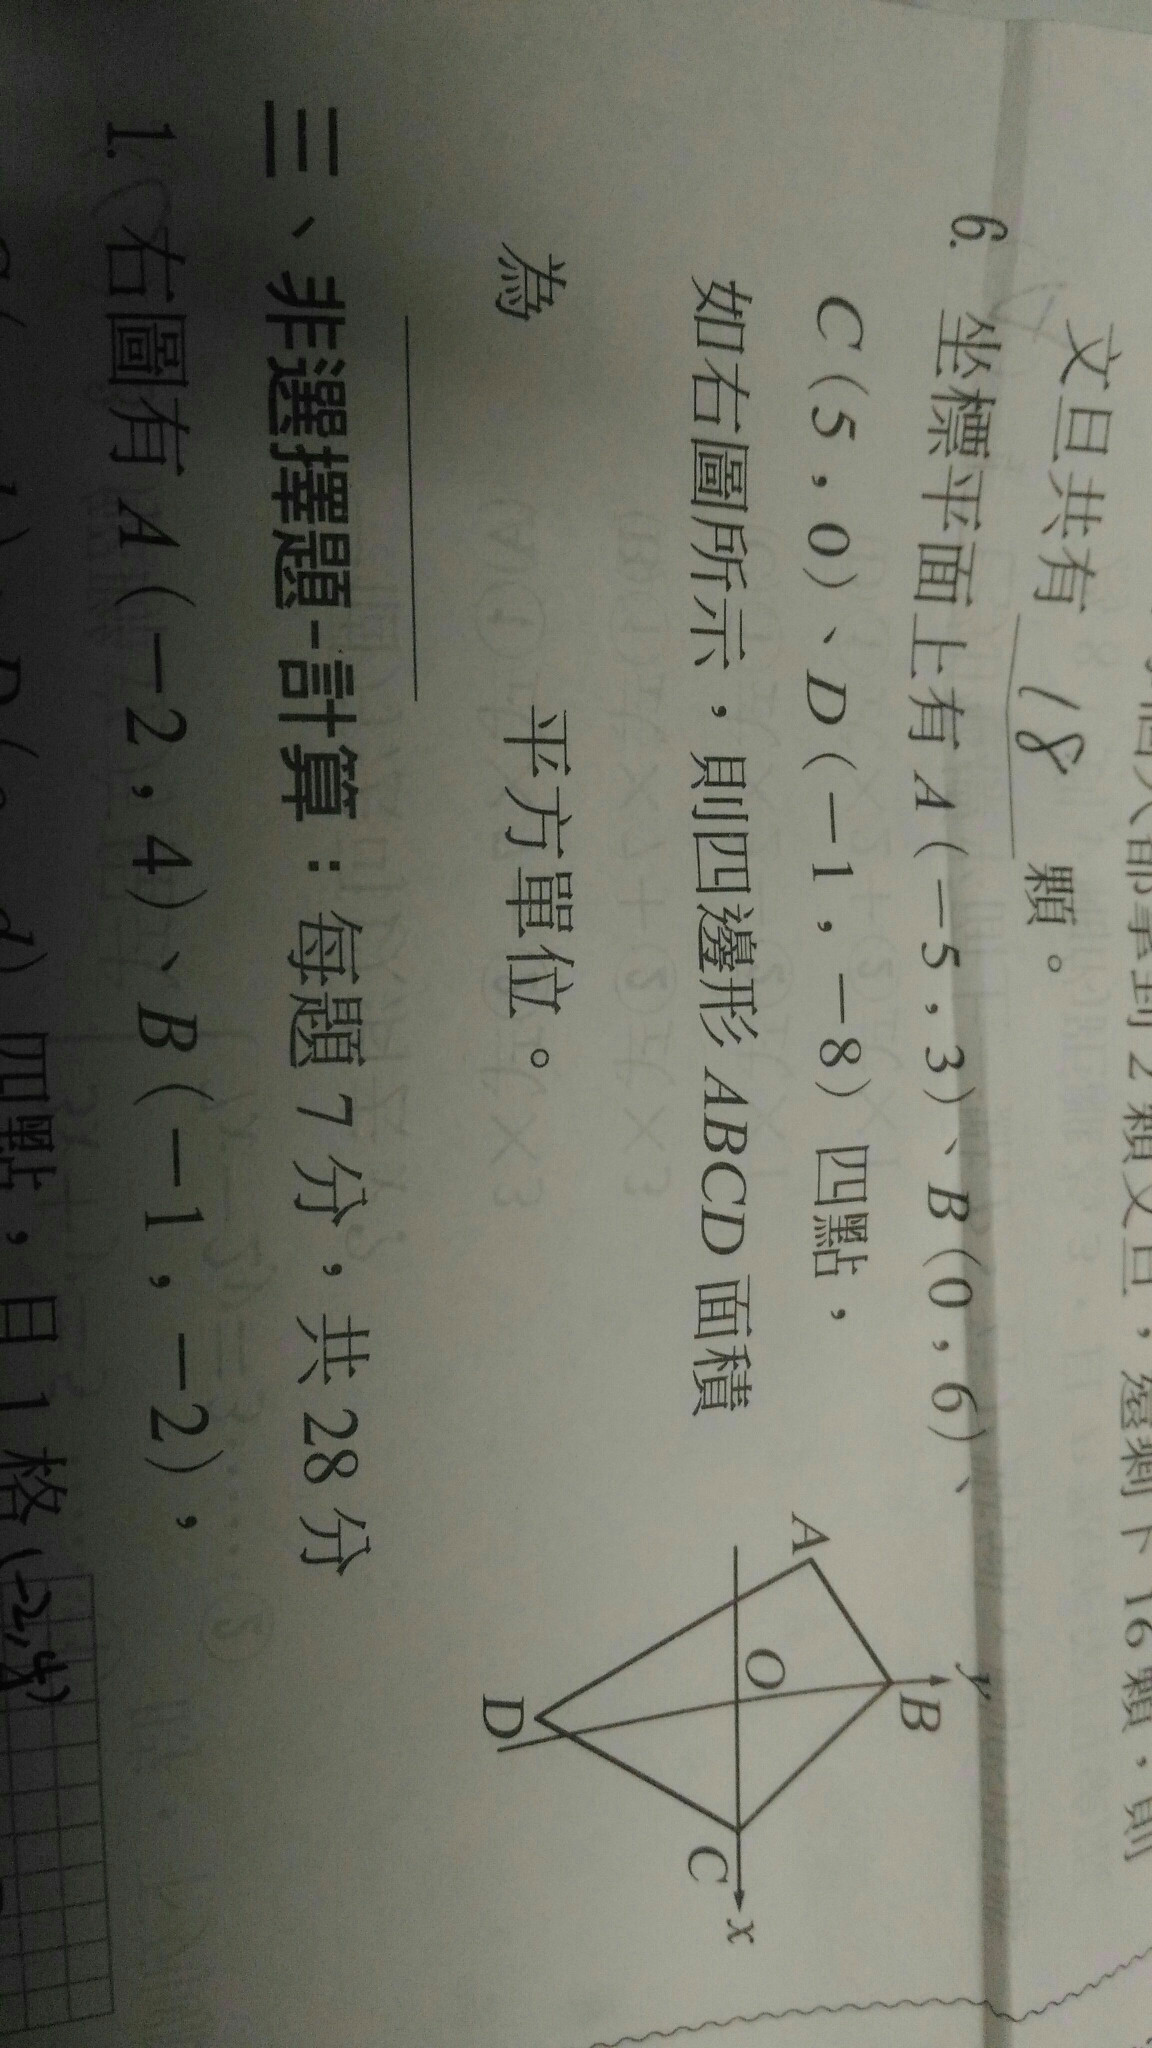 到 2 顆文旦，還剩下 16 顆，則
文旦共有 18 顆。
6. 坐標平面上有 A(−5,3)、B(0,6)、
C(5,0)、D(−1,−8) 四點，
如右圖所示，則四邊形 ABCD 面積
為 平方單位。
y
B
A
O
C
x
D
三、非選擇題-計算：每題 7 分，共 28 分
1. 右圖有 A(−2,4)、B(−1,−2)，
四點，且 1 格
(-2,4)